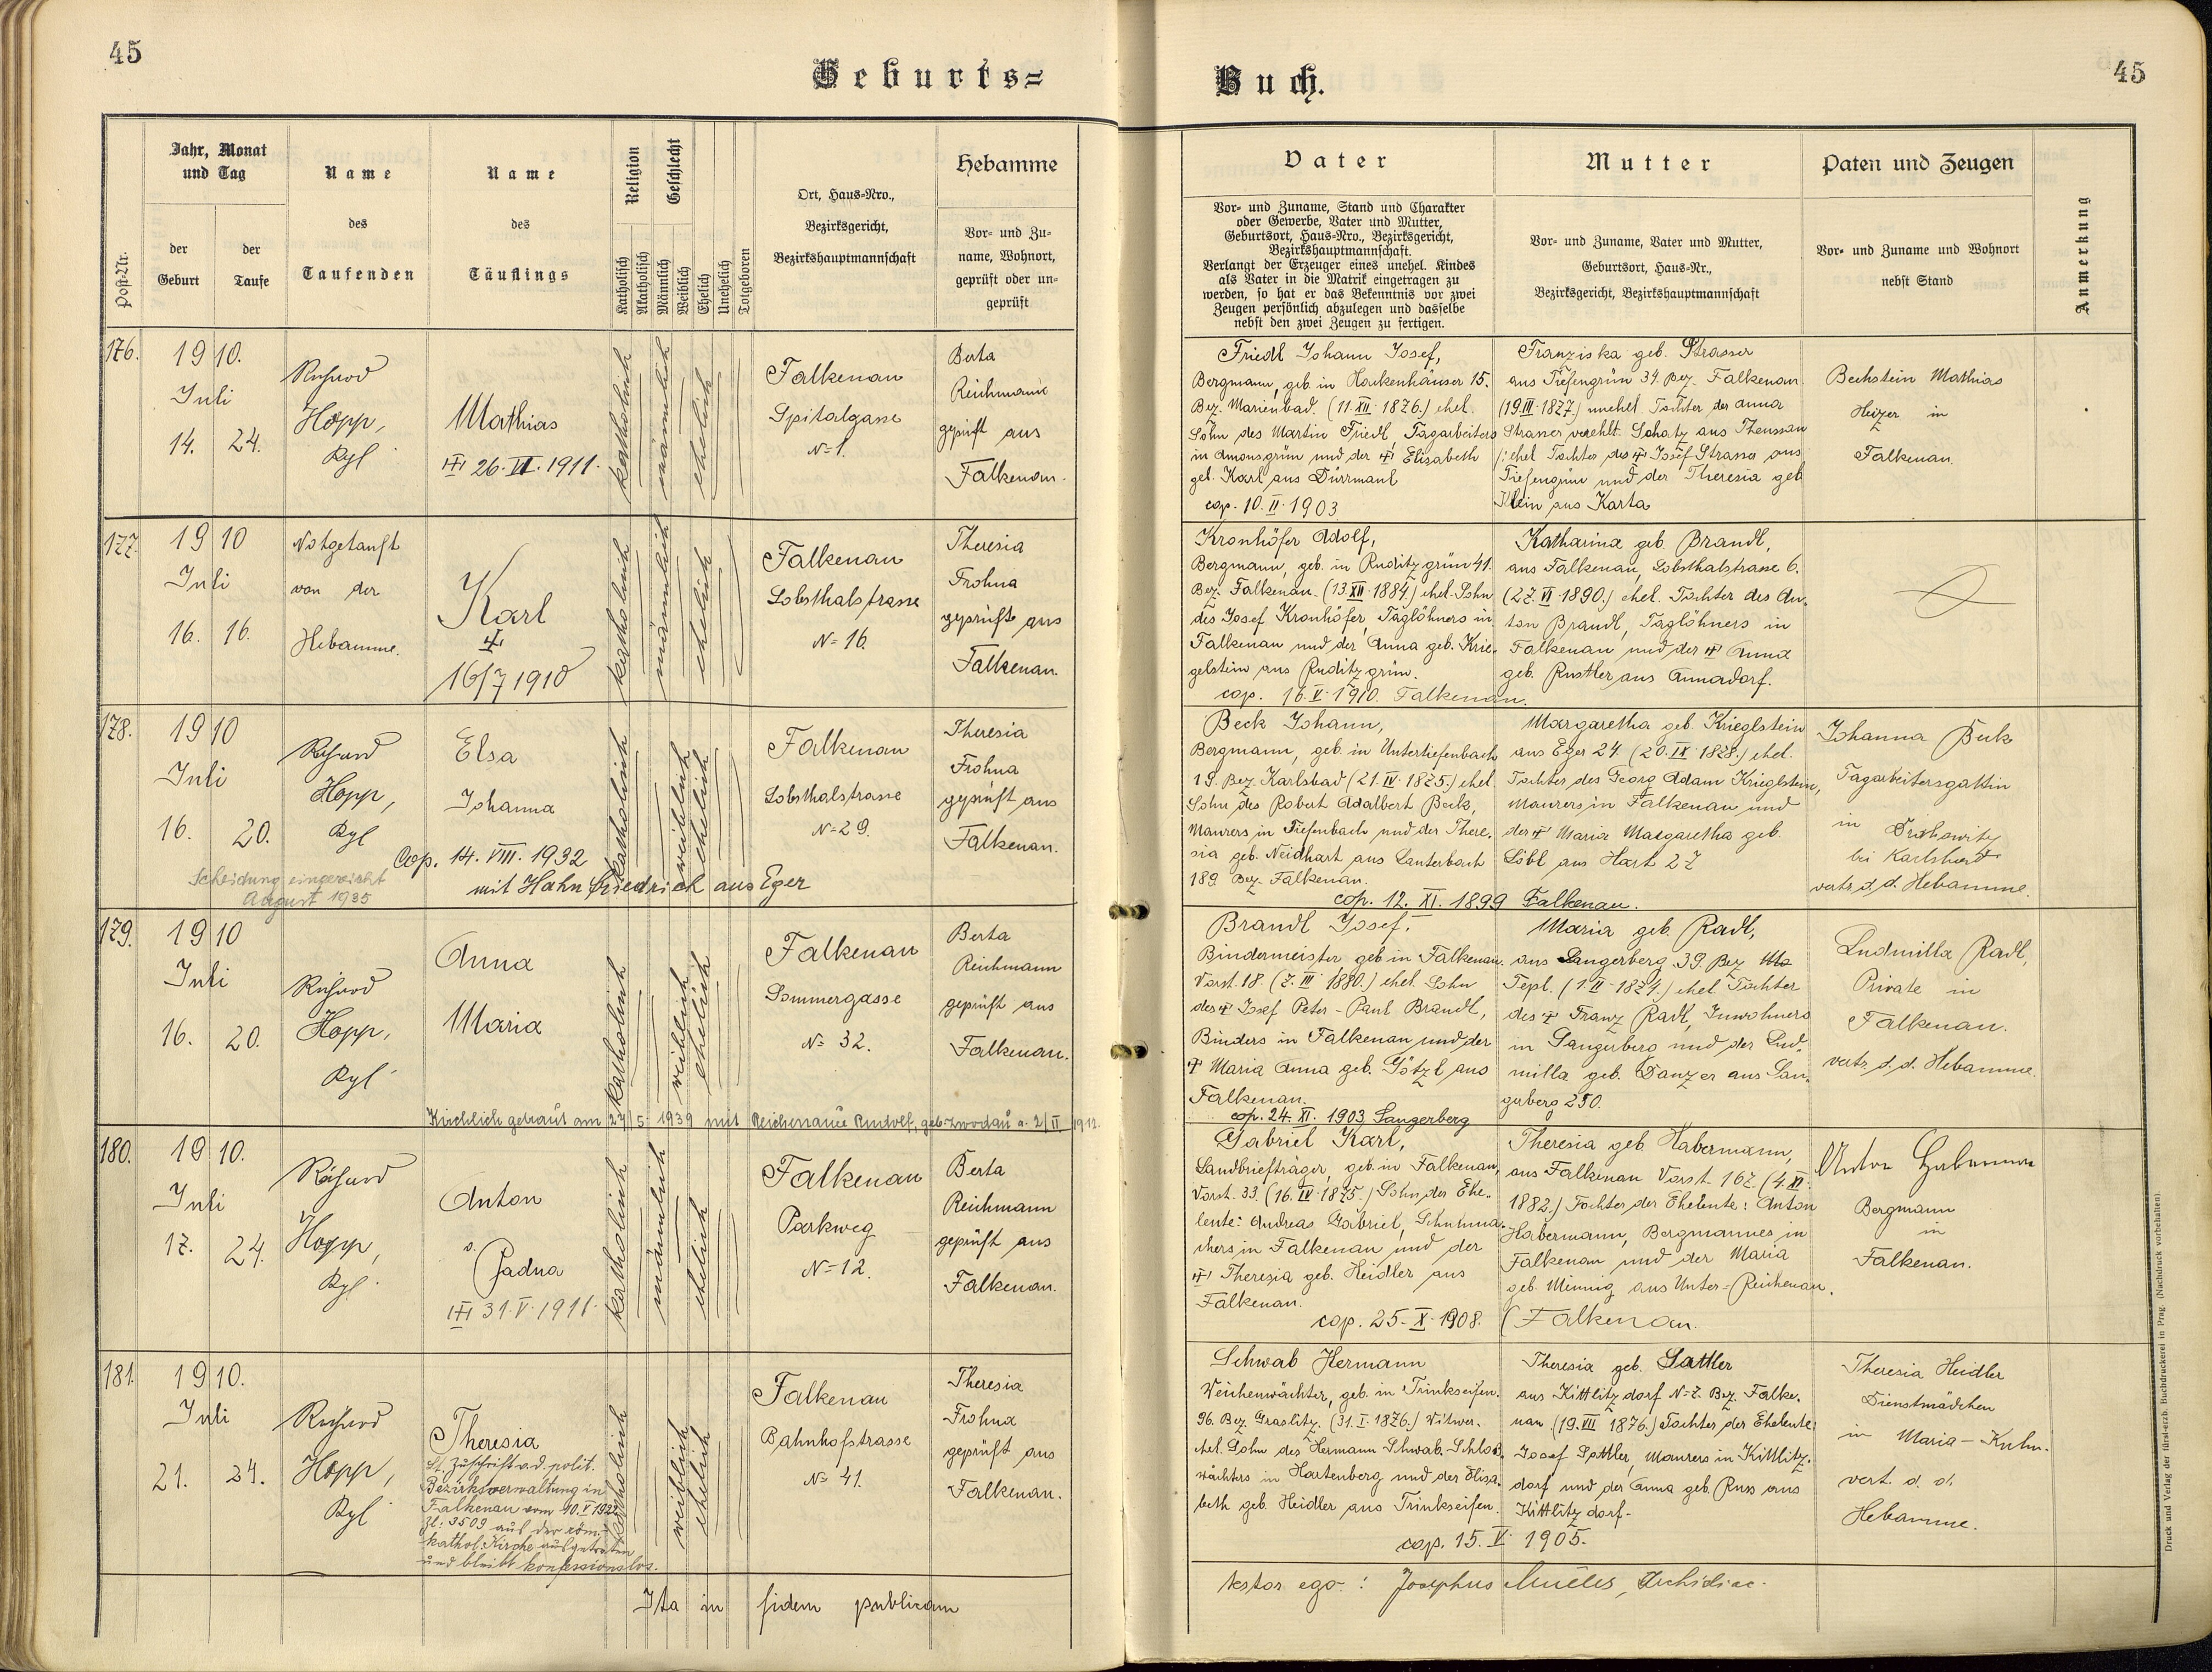 45
Geburts=
Buch.
45
Post-Nr.
Jahr, Monat
und Tag
der
Geburt
der
Taufe
Name
des
Taufenden
Name
des
Täuflings
Religion
Katholisch
Akatholisch
Geschlecht
Männlich
Weiblich
Ehelich
Unehelich
Totgeboren
Ort, Haus-Nro.,
Bezirksgericht,
Bezirkshauptmannschaft
Hebamme
Vor- und Zu-
name, Wohnort,
geprüft oder un-
geprüft
Vater
Vor- und Zuname, Stand und Charakter
oder Gewerbe, Vater und Mutter,
Geburtsort, Haus-Nro., Bezirksgericht,
Bezirkshauptmannschaft.
Verlangt der Erzeuger eines unehel. Kindes
als Vater in die Matrik eingetragen zu
werden, so hat er das Bekenntnis vor zwei
Zeugen persönlich abzulegen und dasselbe
nebst den zwei Zeugen zu fertigen.
Mutter
Vor- und Zuname, Vater und Mutter,
Geburtsort, Haus-Nr.,
Bezirksgericht, Bezirkshauptmannschaft
Paten und Zeugen
Vor- und Zuname und Wohnort
nebst Stand
Anmerkung
176.
1910.
Juli
14. 24.
Richard
Hopp,
Kpl
Mathias
26. VI. 1911.
katholisch
männlich
ehelich
Falkenau
Spitalgasse
N=1.
Berta
Reichmann
geprüft aus
Falkenau.
Friedl Johann Josef,
Bergmann, geb. in Hackenhäuser 15.
Bez. Marienbad. (11. XII. 1876.) ehel.
Sohn des Martin Friedl, Tagarbeiters
in Amonsgrün und der Elisabeth
geb. Karl aus Dürrmaul
cop. 10. II. 1903
Franziska geb. Strasser
aus Tiefengrün 34. Bez. Falkenau.
(19. III. 1877.) unehel. Tochter der Anna
Strasser verehlt. Schatz aus Theussau
(: ehel. Tochter des Josef Strasser aus
Tiefengrün und der Theresia geb
Klein aus Karta
Bechstein Mathias
Heizer in
Falkenau.
177.
1910
Juli
16. 16.
Notgetauft
von der
Hebamme.
Karl
16/7 1910
katholisch
männlich
ehelich
Falkenau
Lobsthalstrasse
N= 16.
Theresia
Frohna
geprüfte aus
Falkenau.
Kronhöfer Adolf,
Bergmann, geb. in Ruditzgrün 41.
Bez. Falkenau. (13. XII. 1884) ehel. Sohn
des Josef Kronhöfer, Taglöhners in
Falkenau und der Anna geb. Krie-
gelstein aus Ruditzgrün.
cop. 16. V. 1910. Falkenau.
Katharina geb. Brandl,
aus Falkenau, Lobsthalstrasse 6.
(27. VI. 1890.) ehel. Tochter des An-
ton Brandl, Taglöhners in
Falkenau und der Anna
geb. Rustler aus Annadorf.
178.
1910
Juli
16. 20.
Richard
Hopp,
Kpl
Elsa
Johanna
Cop. 14. VIII. 1932
mit Hahn Friedrich aus Eger
Scheidung eingereicht
August 1935
katholisch
weiblich
ehelich
Falkenau
Lobsthalstrasse
N= 29.
Theresia
Frohna
geprüft aus
Falkenau.
Beck Johann,
Bergmann, geb. in Untertiefenbach
19. Bez. Karlsbad (21. IV. 1875.) ehel
Sohn des Robert Adalbert Beck,
Maurers in Tiefenbach und der There-
sia geb. Neidhart aus Lauterbach
189. Bez. Falkenau.
cop. 12. XI. 1899 Falkenau.
Margaretha geb. Krieglstein
aus Eger 24. (20. IX. 1878.) ehel.
Tochter des Georg Adam Krieglstein,
Maurers in Falkenau und
der Maria Margaretha geb.
Löbl aus Hart 27
Johanna Beck
Tagarbeitersgattin
in Drahowitz
bei Karlsbad
vertr. d. d. Hebamme.
179.
1910
Juli
16. 20.
Richard
Hopp,
Kpl
Anna
Maria
katholisch
weiblich
ehelich
Kirchlich getraut am 27/5. 1939 mit Reichenauer Rudolf, geb. Zwodau a. 2/II 1912.
Falkenau
Sommergasse
N= 32.
Berta
Reichmann
geprüft aus
Falkenau.
Brandl Josef,
Bindermeister geb in Falkenau.
Vorst. 18. (7. III. 1880.) ehel. Sohn
des Josef Peter-Paul Brandl,
Binders in Falkenau und der
Maria Anna geb. Götzl aus
Falkenau.
cop. 24. XI. 1903 Sangerberg
Maria geb. Radl,
aus Sangerberg 39. Bez.
Tepl. (1. II. 1871.) ehel. Tochter
des Franz Radl, Inwohners
in Sangerberg und der Lud-
milla geb. Danzer aus San-
gerberg 250.
Ludmilla Radl,
Private in
Falkenau.
vertr. d. d. Hebamme.
180.
1910.
Juli
17. 24.
Richard
Hopp,
Kpl.
Anton
v. Padua
31. V. 1911.
katholisch
männlich
ehelich
Falkenau
Parkweg
N= 12.
Berta
Reichmann
geprüft aus
Falkenau.
Gabriel Karl,
Landbriefträger, geb. in Falkenau,
Vorst. 33. (16. IV. 1875.) Sohn der Ehe-
leute: Andreas Gabriel, Schuhma-
chers in Falkenau und der
Theresia geb. Heidler aus
Falkenau.
cop. 25. X. 1908. (Falkenau.
Theresia geb. Habermann,
aus Falkenau Vorst. 167. (4. XI.
1882.) Tochter der Eheleute: Anton
Habermann, Bergmannes in
Falkenau und der Maria
geb. Minnig aus Unter-Reichenau.
Anton Habermann
Bergmann
in
Falkenau.
181.
1910.
Juli
21. 24.
Richard
Hopp,
Kpl
Theresia
Lt. Zuschrift v. d. polit.
Bezirksverwaltung in
Falkenau vom 10. V 1922
Zl: 3509 aus der röm.
kathol. Kirche ausgetreten
und bleibt konfessionslos.
katholisch
weiblich
ehelich
Falkenau
Bahnhofstrasse
N= 41.
Theresia
Frohna
geprüft aus
Falkenau.
Schwab Hermann
Weichenwächter, geb. in Trinkseifen.
96. Bez. Graslitz. (31. I. 1876.) Witwer.
ehel. Sohn des Hermann Schwab, Schloß-
wächters in Hartenberg und der Elisa-
beth geb. Heidler aus Trinkseifen.
cop. 15. V. 1905.
Theresia geb. Sattler
aus Kittlitzdorf N=7. Bez. Falke-
nau (19. VII 1876.) Tochter der Eheleute:
Josef Sattler, Maurers in Kittlitz-
dorf und der Anna geb. Russ aus
Kittlitzdorf.
Theresia Heidler
Dienstmädchen
in Maria-Kulm.
vert. d. d.
Hebamme.
Ita in fidem publicam
testor ego: Josephus Archidiac.
Druck und Verlag der fürst-erzb. Buchdruckerei in Prag. (Nachdruck vorbehalten).